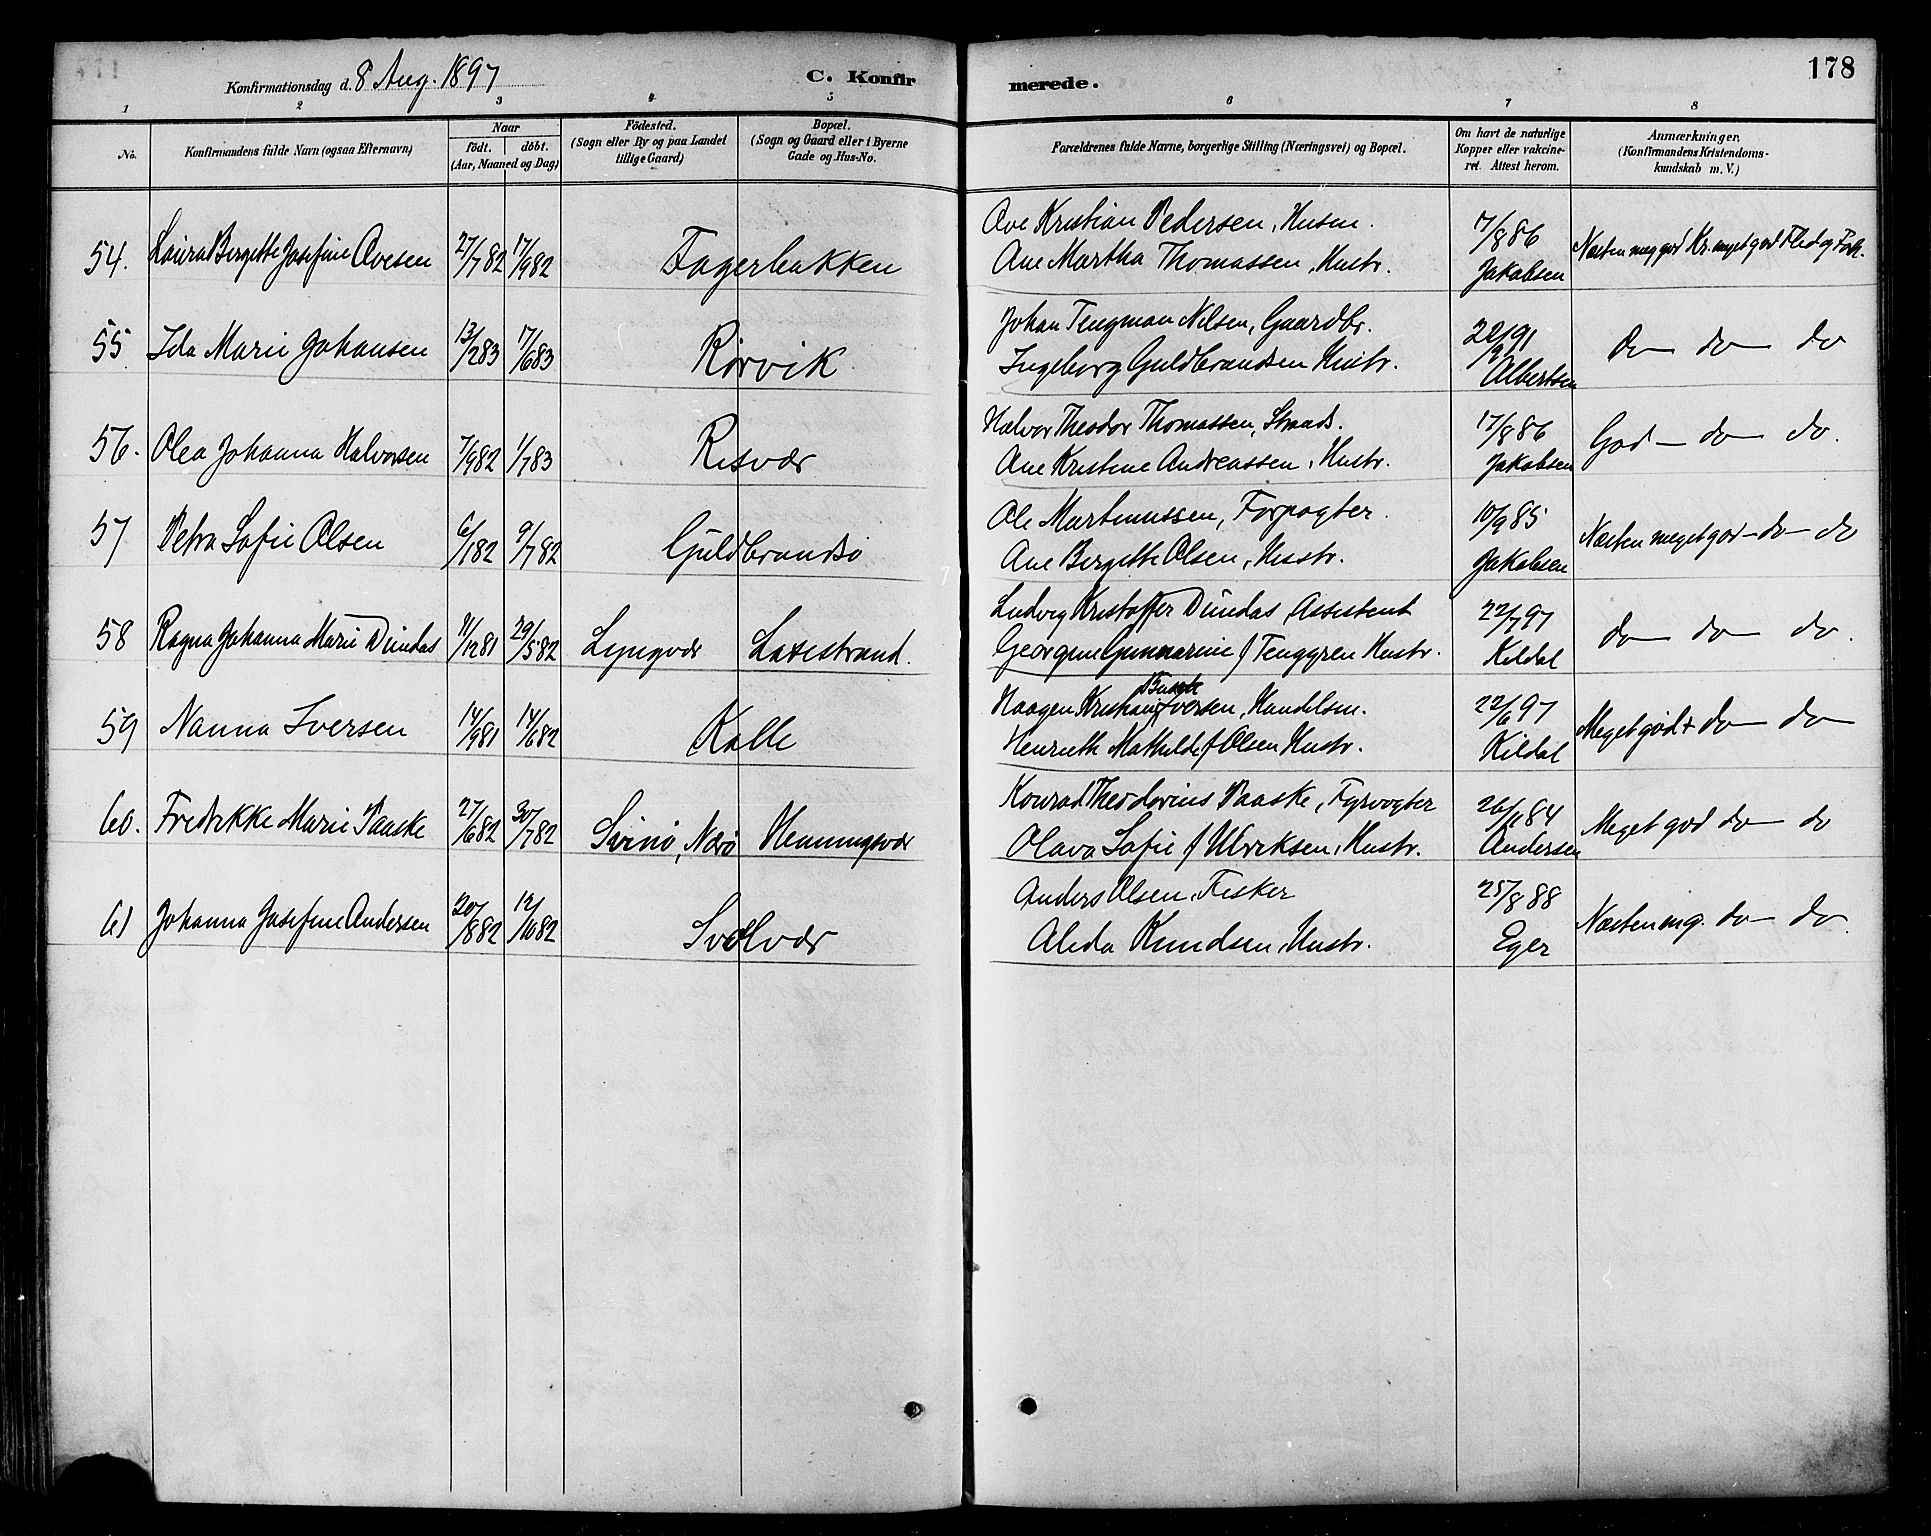 178
Konfirmationsdag d. 8 Aug. 1897
C. Konfir merede.
1 2 3 4 5 6 7 8
No.
Konfirmandens fulde Navn (ogsaa Efternavn)
Naar
födt. döbt.
(Aar, Maaned og Dag)
Födested.
(Sogn eller By og paa Landet
tillige Gaard)
Bopæl.
(Sogn og Gaard eller i Byerne
Gade og Hus-No.
Forældrenes fulde Navne, borgerlige Stilling (Næringsvei) og Bopæl.
Om havt de naturlige
Kopper eller vakcine-
ret. Attest herom.
Anmærkninger.
(Konfirmandens Kristendoms-
kundskab m. V.)
Ove Kristian Pedersen, Husm.
54. Laura Bergette Josefine Ovesen 27/7 82 17/9 82 Fagerbakken 17/8 86
Ane Martha Thomassen, Hustr. Jakobsen
Næsten meg god Kr. meget god Flid og Forh.
Johan Tengman Nilsen, Gaardbr.
55 Ida Marie Johansen 13/2 83 17/6 83 Rørvik
Ingeborg Guldbrandsen Hustr. Albertsen
Do do do
Halvor Theodor Thomassen, Strands.
56. Olea Johanna Halvorsen 7/9 82 1/7 83 Risvær 17/8 86
Ane Kristine Andreassen, Hustr. Jakobsen
God - do - do.
Ole Martinussen, Forpagter.
57 Petra Sofie Olsen 6/1 82 9/7 82 Guldbrandsø 10/9 85
Ane Bergette Olsen, Hustr. Jakobsen
Næsten meget god - do - do
Ludvig Kristoffer Dundas Assistent
58 Ragna Johanna Marie Dundas 11/12 81 29/5 82 Lyngvær Laxestrand. 22/7 97
Georgine Gunnarine f Tenggren Hustr. Kildal
do do do.
Busch
Haagen Kristian Iversen, Handelsm.
59 Nanna Iversen 14/9 81 14/6 82 Kalle 22/6 97
Henriette Mathilde f Olsen Hustr. Kildal
Meget god + do - do
Konrad Theodorius Paaske, Fyrvogter
60. Fredrikke Marie Paaske 27/6 82 30/7 82 Svinø, Nærø Henningsvær 26/1 84
Olava Sofie f Ulriksen, Hustr. Andersen
Meget god do - do
Anders Olsen, Fisker
61 Johanna Josefine Andersen 20/8 82 Svolvær 25/8 88
Aleda Knudsen, Hustr. Eger
Næsten mg. do - do.